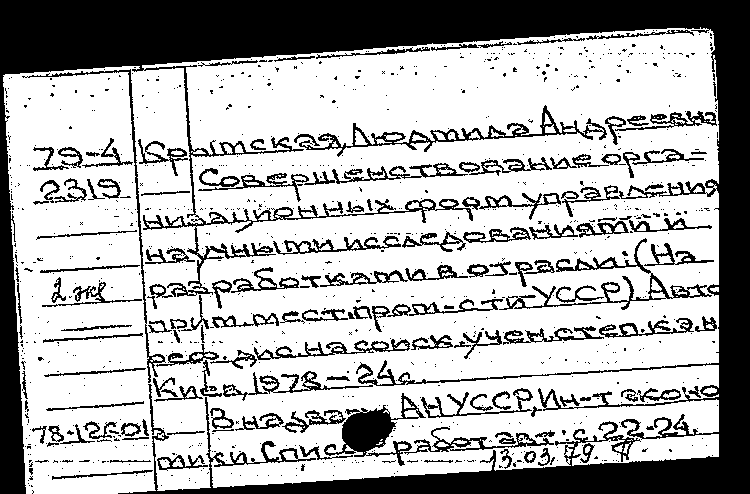 79-4 Крымская, Людмила Андреевна
2319 Совершенствование орга-
низационных форм управления
научными исследованиями и
2 экз разработками в отрасли: (На
прим. мест. пром-сти УССР). Авто
реф. дис. на соиск. учен. степ. к.э.н
Киев, 1978. - 24 с.
В надзаг. АН УССР, Ин-т эконо
78-12601 мики. Список работ авт.: с. 22-24.
13.03.79.